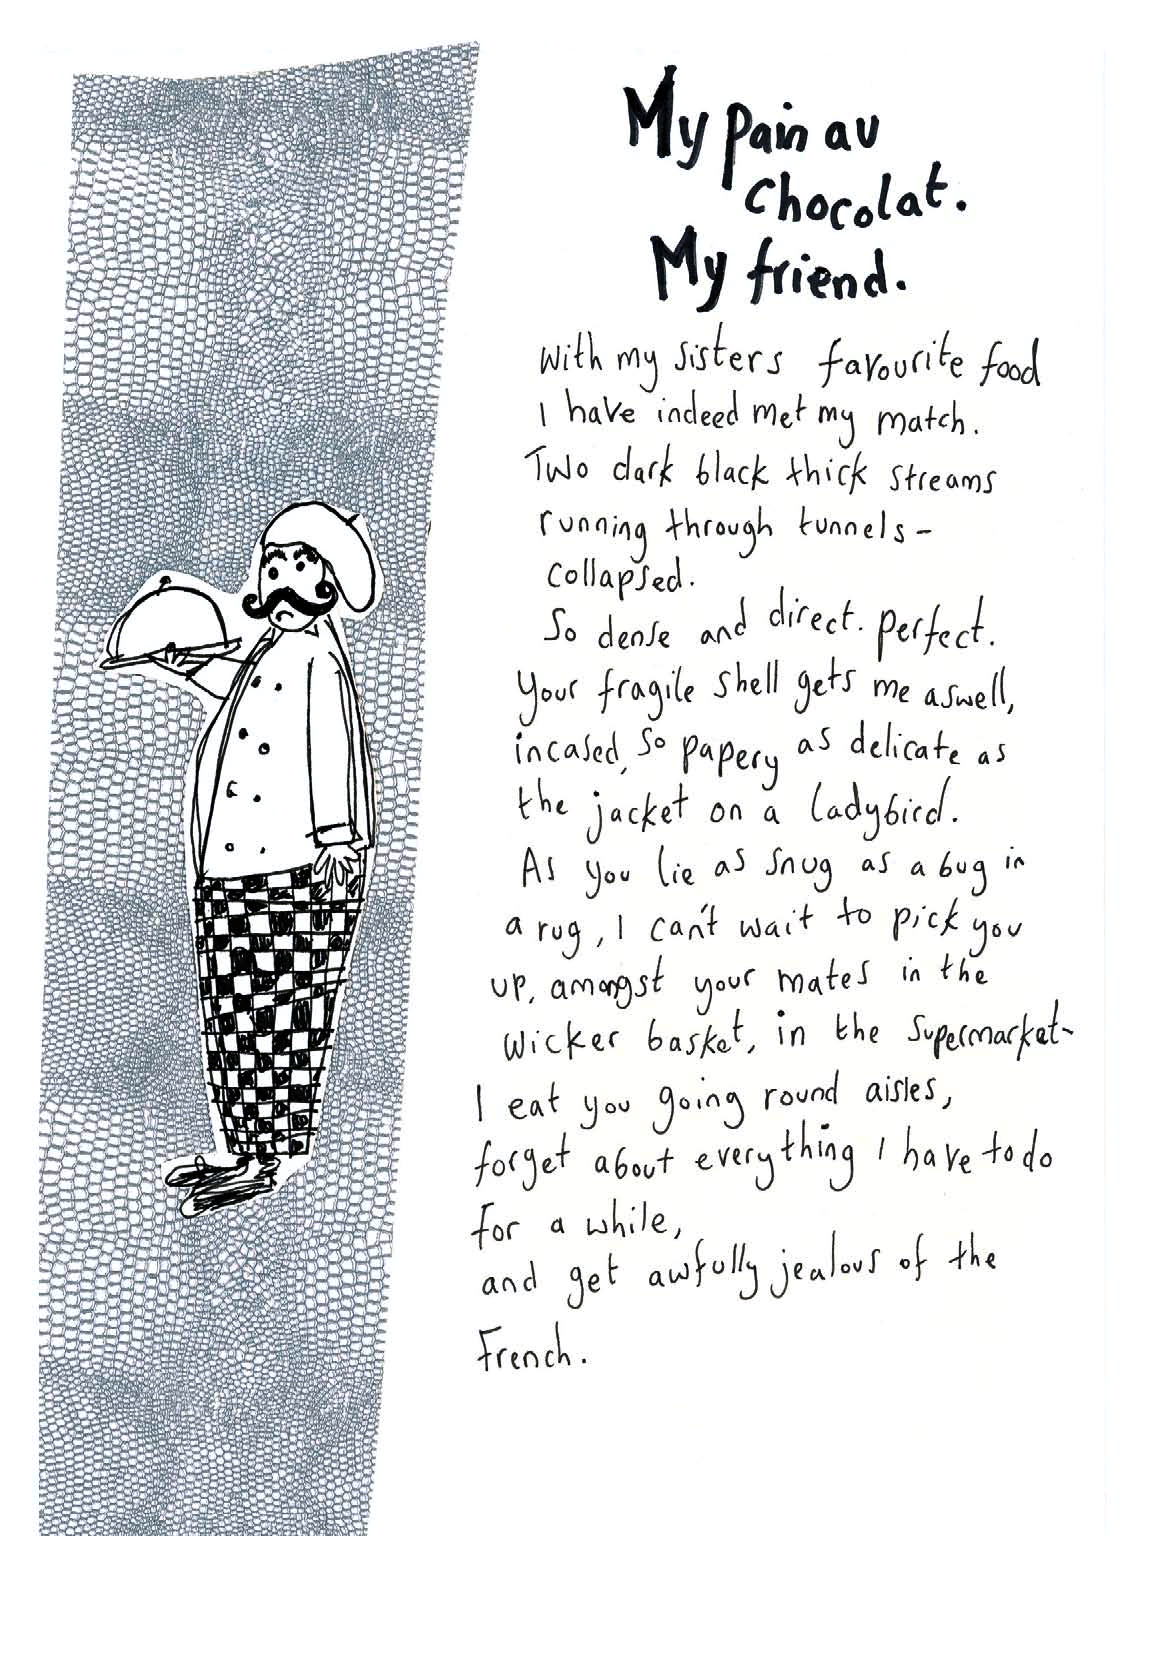 My pain au
chocolat.
My friend.
With my sisters favourite food
I have indeed met my match.
Two dark black thick streams
running through tunnels-
collapsed.
So dense and direct. perfect.
Your fragile shell gets me aswell,
incased, so papery as delicate as
the jacket on a ladybird.
As you lie as snug as a bug in
a rug, I can't wait to pick you
up, amongst your mates in the
wicker basket, in the supermarket-
I eat you going round aisles,
forget about everything I have to do
for a while,
and get awfully jealous of the
French.